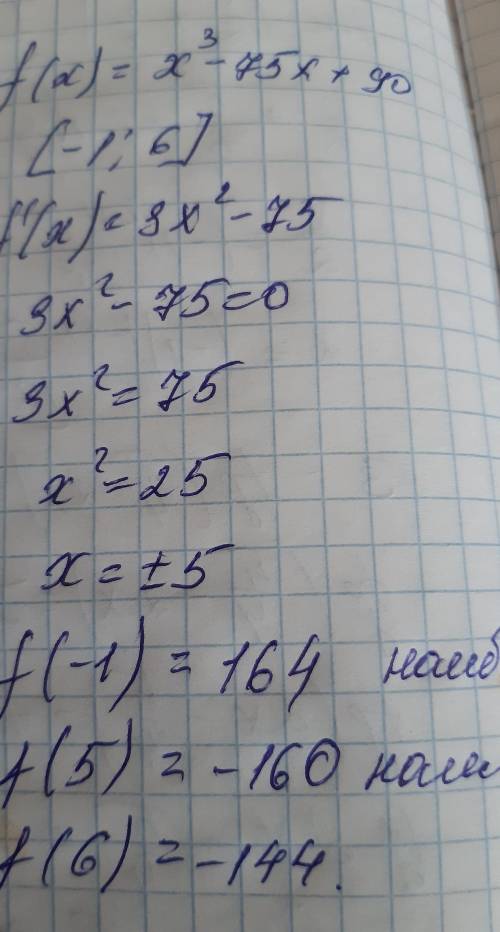 f(x) = x³ - 75x + 90
[-1; 6]
f'(x) = 3x² - 75
3x² - 75 = 0
3x² = 75
x² = 25
x = ±5
f(-1) = 164 наиб
f(5) = -160 наим
f(6) = -144.